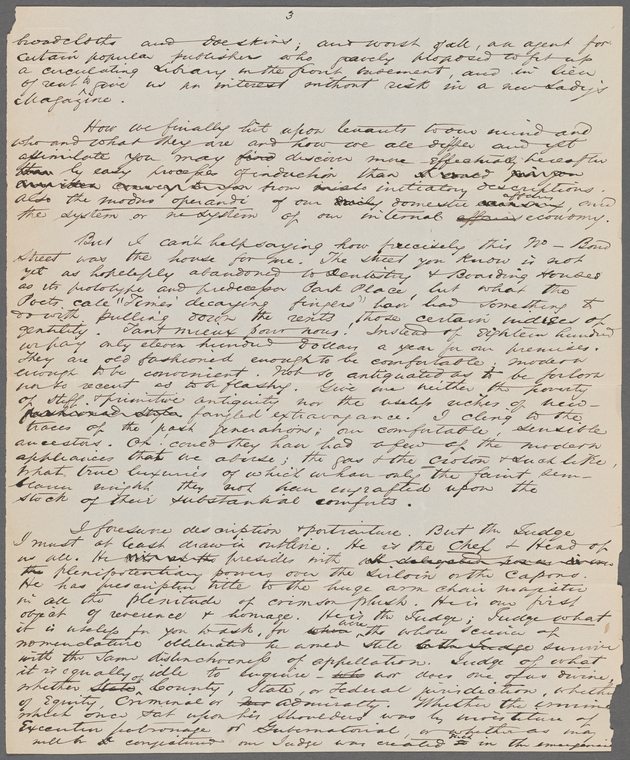 3
broadcloths and doeskins; and worst of all, an agent for
certain popular publishers who gravely proposed to fit up
a circulating Library in the front basement, and in lieu
of rent to give us an interest without risk in a new Lady's
Magazine.
How we finally hit upon tenants to our mind and
who and what they are and how we all differ and yet
assimilate you may find discover more effectively hereafter
than by easy process of induction than
from initiatory descriptions.
Also the modus operandi of our daily domestic affairs, and
the system or no-system of our internal affairs economy.
But I can't help saying how precisely this No — Bond
Street was the house for me. The street you know is not
yet as hopelessly abandoned to Dentistry & Boarding Houses
as its prototype and predecessor Park Place, but what the
Poets call "Times' decaying fingers" have had something to
do with pulling down the rents, those certain indices of
gentility. Tant mieux pour nous! Instead of Eighteen hundred
we pay only eleven hundred Dollars a year for our premises.
They are old fashioned enough to be comfortable, modern
enough to be convenient. Not so antiquated as to be forlorn
nor so recent as to be flashy. Give me neither the poverty
of stiff & primitive antiquity nor the useless riches of new-
fashioned style fangled extravagance. I cling to the
traces of the past generations; our comfortable, sensible
ancestors. Oh! could they have had a few of the modern
appliances that we abuse; the gas & the Croton & such like,
what true luxuries of which we have only the faint sem-
blance might they not have engrafted upon the
stock of their substantial comforts.
I foreswore description & portraiture. But the Judge
I must at least draw in outline. He is the Chef & Head of
us all. He presides with
the plenipotentiary powers over the Sirloin or the Capons.
He has prescriptive title to the huge arm chair majestic
in all the plenitude of crimson plush. He is our first
object of reverence & homage. He is the Judge; Judge what
it is useless for you to ask, for were the whole science of
nomenclature obliterated the armed title survive
with the same distinctness of appellation. Judge of what
it is equally idle to inquire — nor does one of us divine,
whether State of County, State, or Federal jurisdiction, whether
of Equity, Criminal or Admiralty. Whether the ermine
which once sat upon his shoulders was by investiture of
Executive patronage or Gubernatorial, or whether as may
well be conjectured our Judge was created such in the emergencies